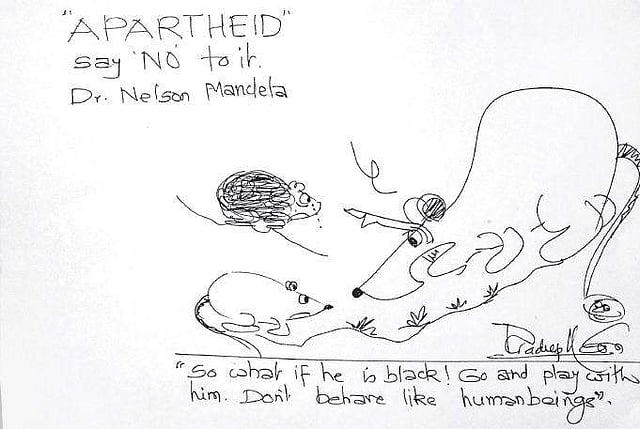 "APARTHEID"
say 'NO' to it.
Dr. Nelson Mandela
"So what if he is black! Go and play with
him. Don't behave like humanbeings".